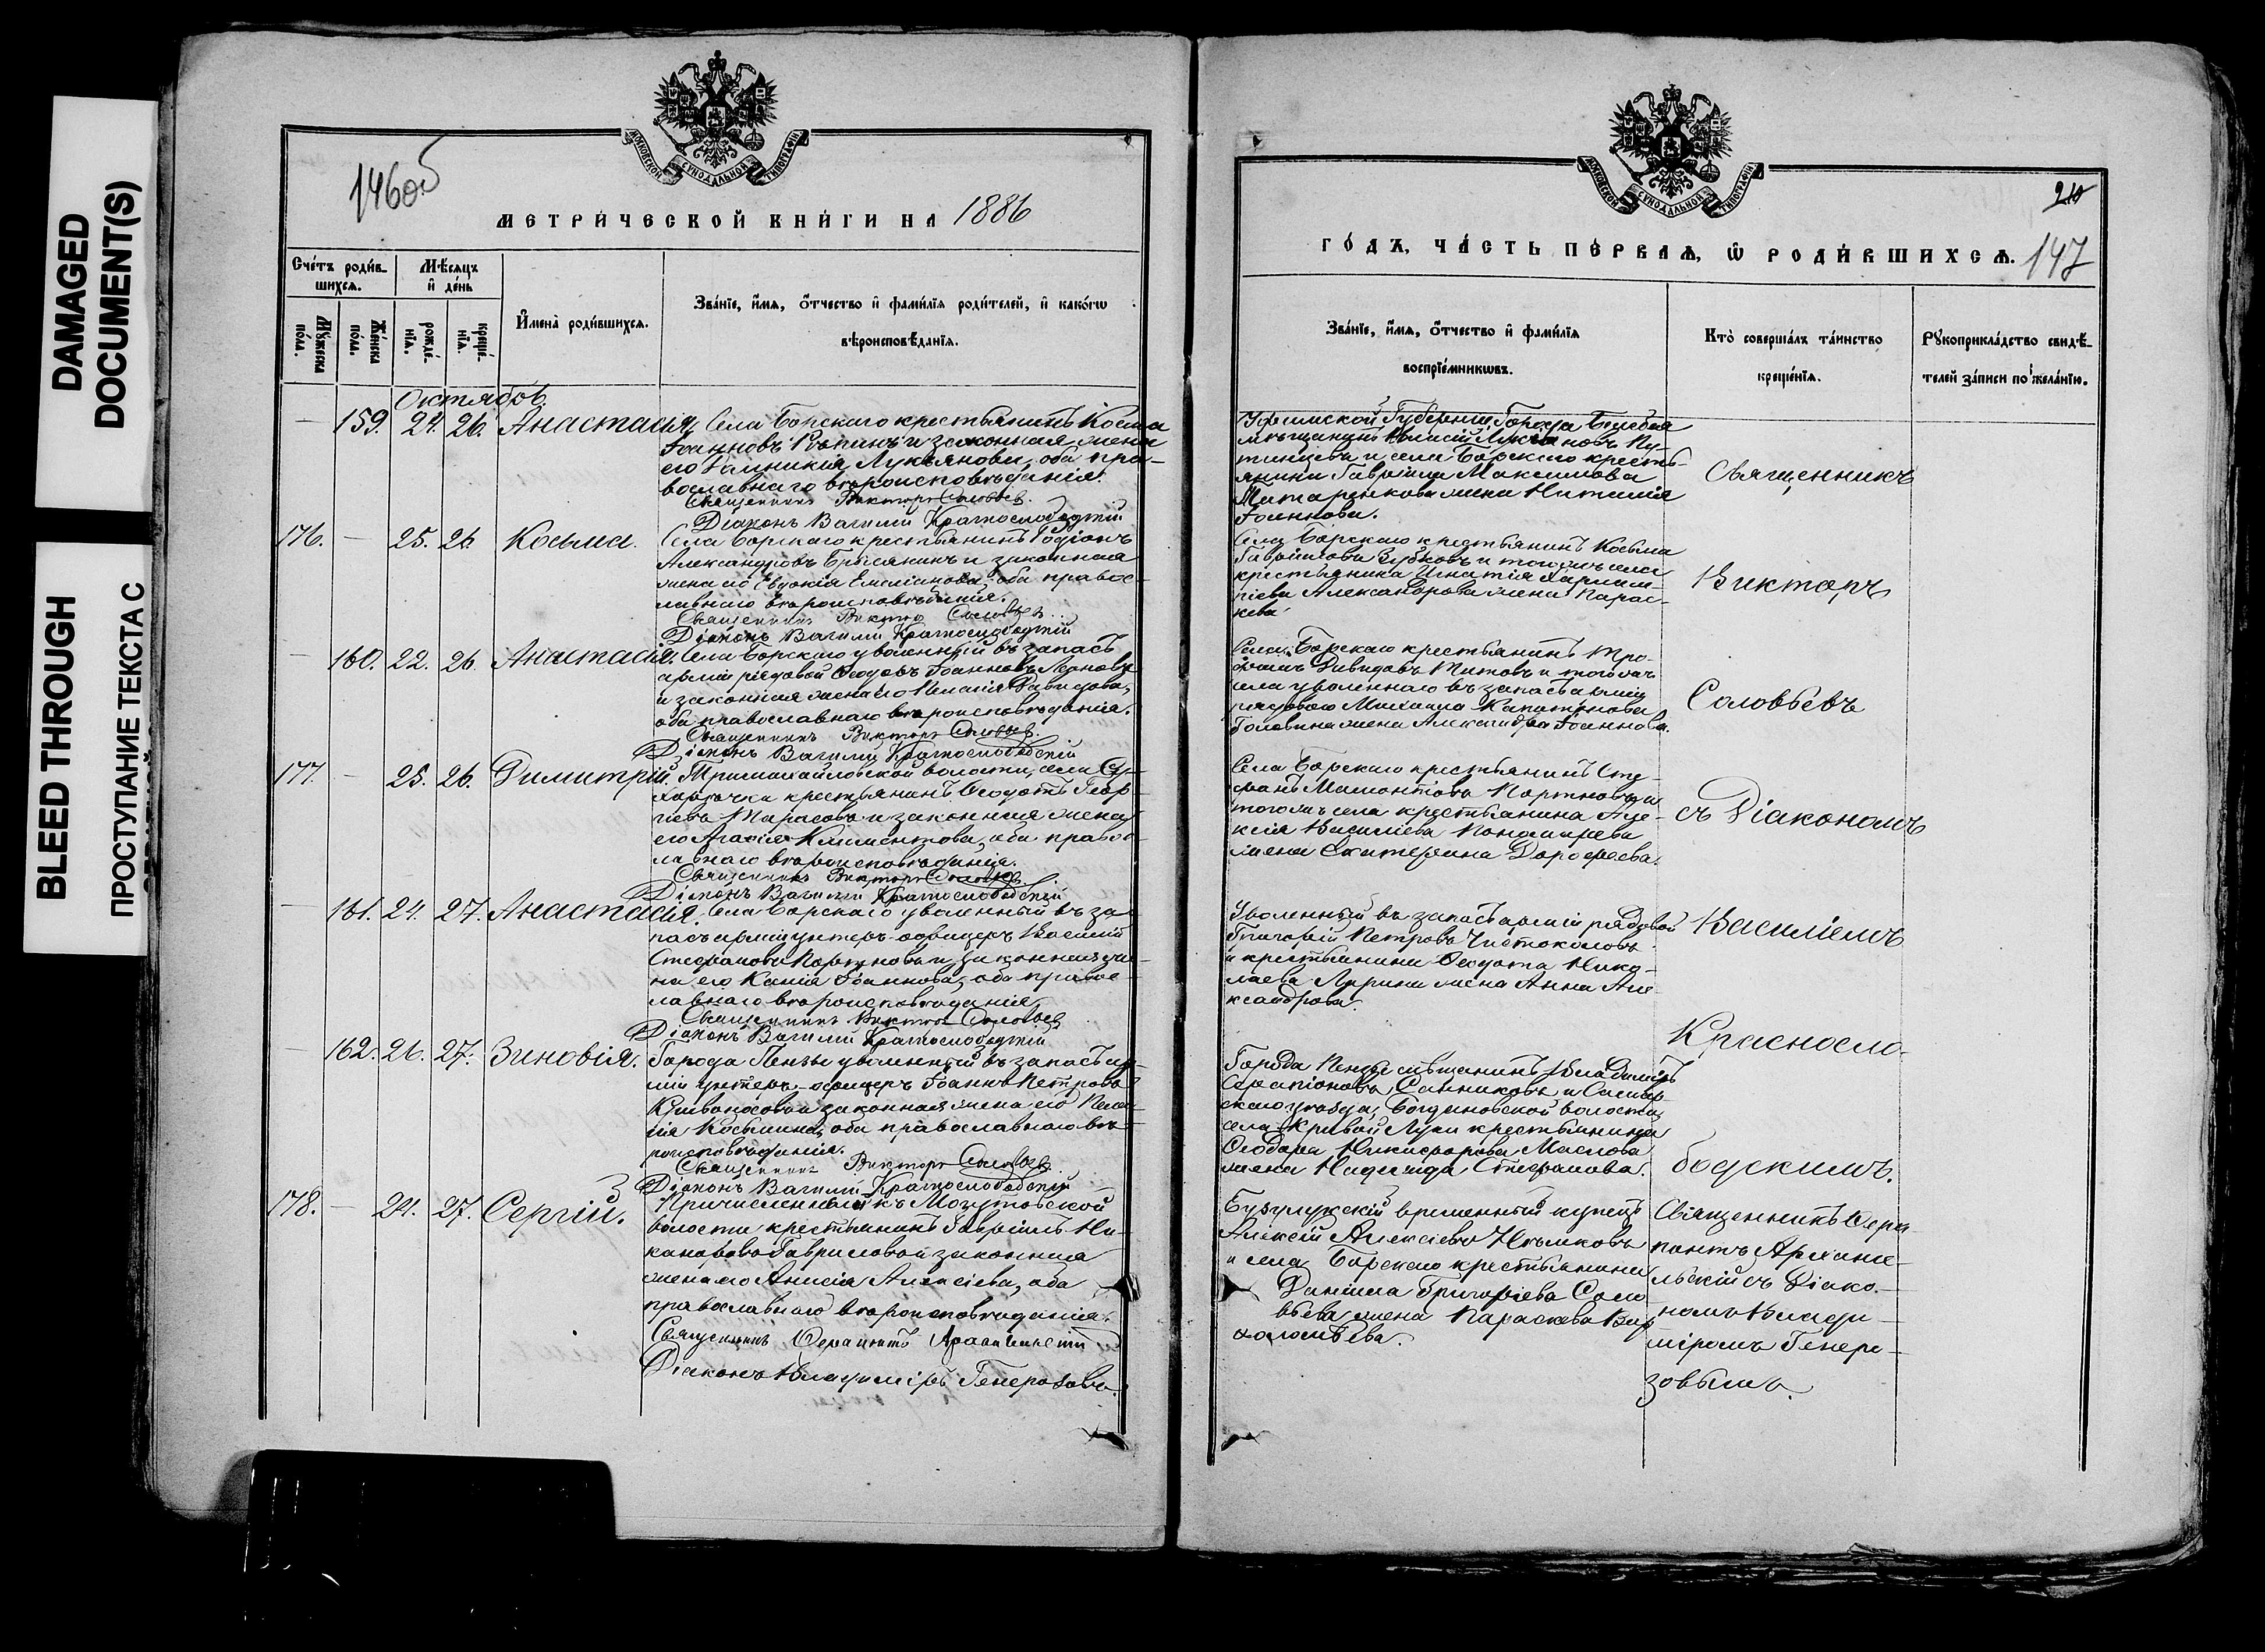 DAMAGED
DOCUMENT(S)
BLEED THROUGH
ПРОСТУПАНИЕ ТЕКСТА С
МОСКОВСКОЙ СѴНОДАЛЬНОЙ ТИПОГРАФІИ
146об
МЕТРИЧЕСКОЙ КНИГИ НА 1886
Счетъ родив-
шихся.
Мѣсяцъ
и день
Мужеска
пола.
Женска
пола.
рожде-
нія.
креще-
нія.
Имена родившихся.
Званіе, имя, отчество и фамилія родителей, и какого
вѣроисповѣданія.
Октябрь.
159. 24. 26. Анастасія
Села Борскаго крестьянинъ Косма
Іоанновъ и законная жена
его Лукьянова, оба пра-
вославнаго вѣроисповѣданія.
Священникъ Викторъ Соловьев.
Діаконъ Василій Краснослободскій
176. — 25. 26. Косьма.
Села Борскаго крестьянинъ Родіонъ
Александровъ и законная
жена его Евдокія Емеліанова, оба правос-
лавнаго вѣроисповѣданія.
Священникъ Виктор Соловьев.
Діаконъ Василій Краснослободскій
— 160. 22. 26. Анастасія.
Села Борскаго уволенный въ запасъ
арміи рядовой Ѳеодоръ Іоанновъ
и законная жена его Пелагія Давидова,
оба православнаго вѣроисповѣданія.
Священникъ Викторъ Соловьев.
Діаконъ Василій Краснослободскій
177. — 25. 26. Димитрій.
волости, села Су-
крестьянинъ Ѳеодотъ Геор-
гіевъ Тарасовъ и законная жена
его Агафія Климентова, оба правос-
лавнаго вѣроисповѣданія.
Священникъ Викторъ Соловьев.
Діаконъ Василій Краснослободскій
— 161. 24. 27. Анастасія.
Села Борскаго уволенный въ за-
пасъ арміи унтеръ-офицеръ Василій
Стефановъ Портновъ и законная же-
на его Ксенія Іоаннова, оба правос-
лавнаго вѣроисповѣданія.
Священникъ Виктор Соловьев
Діаконъ Василій Краснослободскій
162. 26. 27. Зиновія.
Города Пензы уволенный въ запасъ ар-
міи унтеръ-офицеръ Іоаннъ Петровъ
Кривоносовъ и законная жена его Пела-
гія Косьмина, оба православнаго вѣ-
роисповѣданія.
Священникъ Викторъ Соловьев.
Діаконъ Василій Краснослободскій
178. — 24. 27. Сергій.
Причисленный къ Могутовской
волости крестьянинъ Гавріилъ Ни-
каноровъ Гавриловъ и законная
жена его Анисія Алексіева, оба
православнаго вѣроисповѣданія.
Священникъ Серапіонъ Архангельскій
Діаконъ Владиміръ Генерозовъ.
МОСКОВСКОЙ СѴНОДАЛЬНОЙ ТИПОГРАФІИ
210
ГОДЪ, ЧАСТЬ ПЕРВАЯ, Ѡ РОДИВШИХСЯ. 147
Званіе, имя, отчество и фамилія
воспріемниковъ.
Кто совершалъ таинство
крещенія.
Рукоприкладство свидѣ-
телей записи по желанію.
Уфимской Губерніи, Города Белебея
мѣщанинъ Алексій Лукьяновъ Пу-
тинцевъ и села Борскаго кресть-
янина Гавріила Максимова
Татаренкова жена Наталія
Іоаннова.
Села Борскаго крестьянинъ Косьма
Гавріиловъ Зубковъ и того же села
крестьянина Игнатія Харлам-
піева Александрова жена Парас-
кева
Села Борскаго крестьянинъ Тро-
фимъ Давидовъ Титовъ и того же
села уволеннаго въ запасъ арміи
рядоваго Михаила Капитонова
Головина жена Александра Іоаннова.
Села Борскаго крестьянинъ Сте-
фанъ Мамонтовъ Портновъ и
того же села крестьянина Але-
ксія Василіева Пономарева
жена Екатерина Дорофеева.
Уволенный въ запасъ арміи рядовой
Григорій Петровъ Чистоколовъ
и крестьянина Ѳеодота Нико-
лаева Ларина жена Анна Але-
ксандрова.
Города Пензы мѣщанинъ Владиміръ
Серапіоновъ Санниковъ и Самар-
скаго уѣзда, Богдановской волости,
села Кривой Луки крестьянина
Ѳеодора Никифорова Маслова
жена Надежда Стефанова.
Бузулукскій временный купецъ
Алексій Алексіевъ
и села Борскаго крестьянина
Даніила Григоріева Соло-
вьева жена Параскева Вар-
ѳоломѣева.
Священникъ
Викторъ
Соловьевъ
съ Діакономъ
Василіемъ
Краснсло-
бодскимъ.
Священникъ Сера-
піонъ Арханге-
льскій съ Діако-
номъ Влади-
міромъ Генеро-
зовымъ.